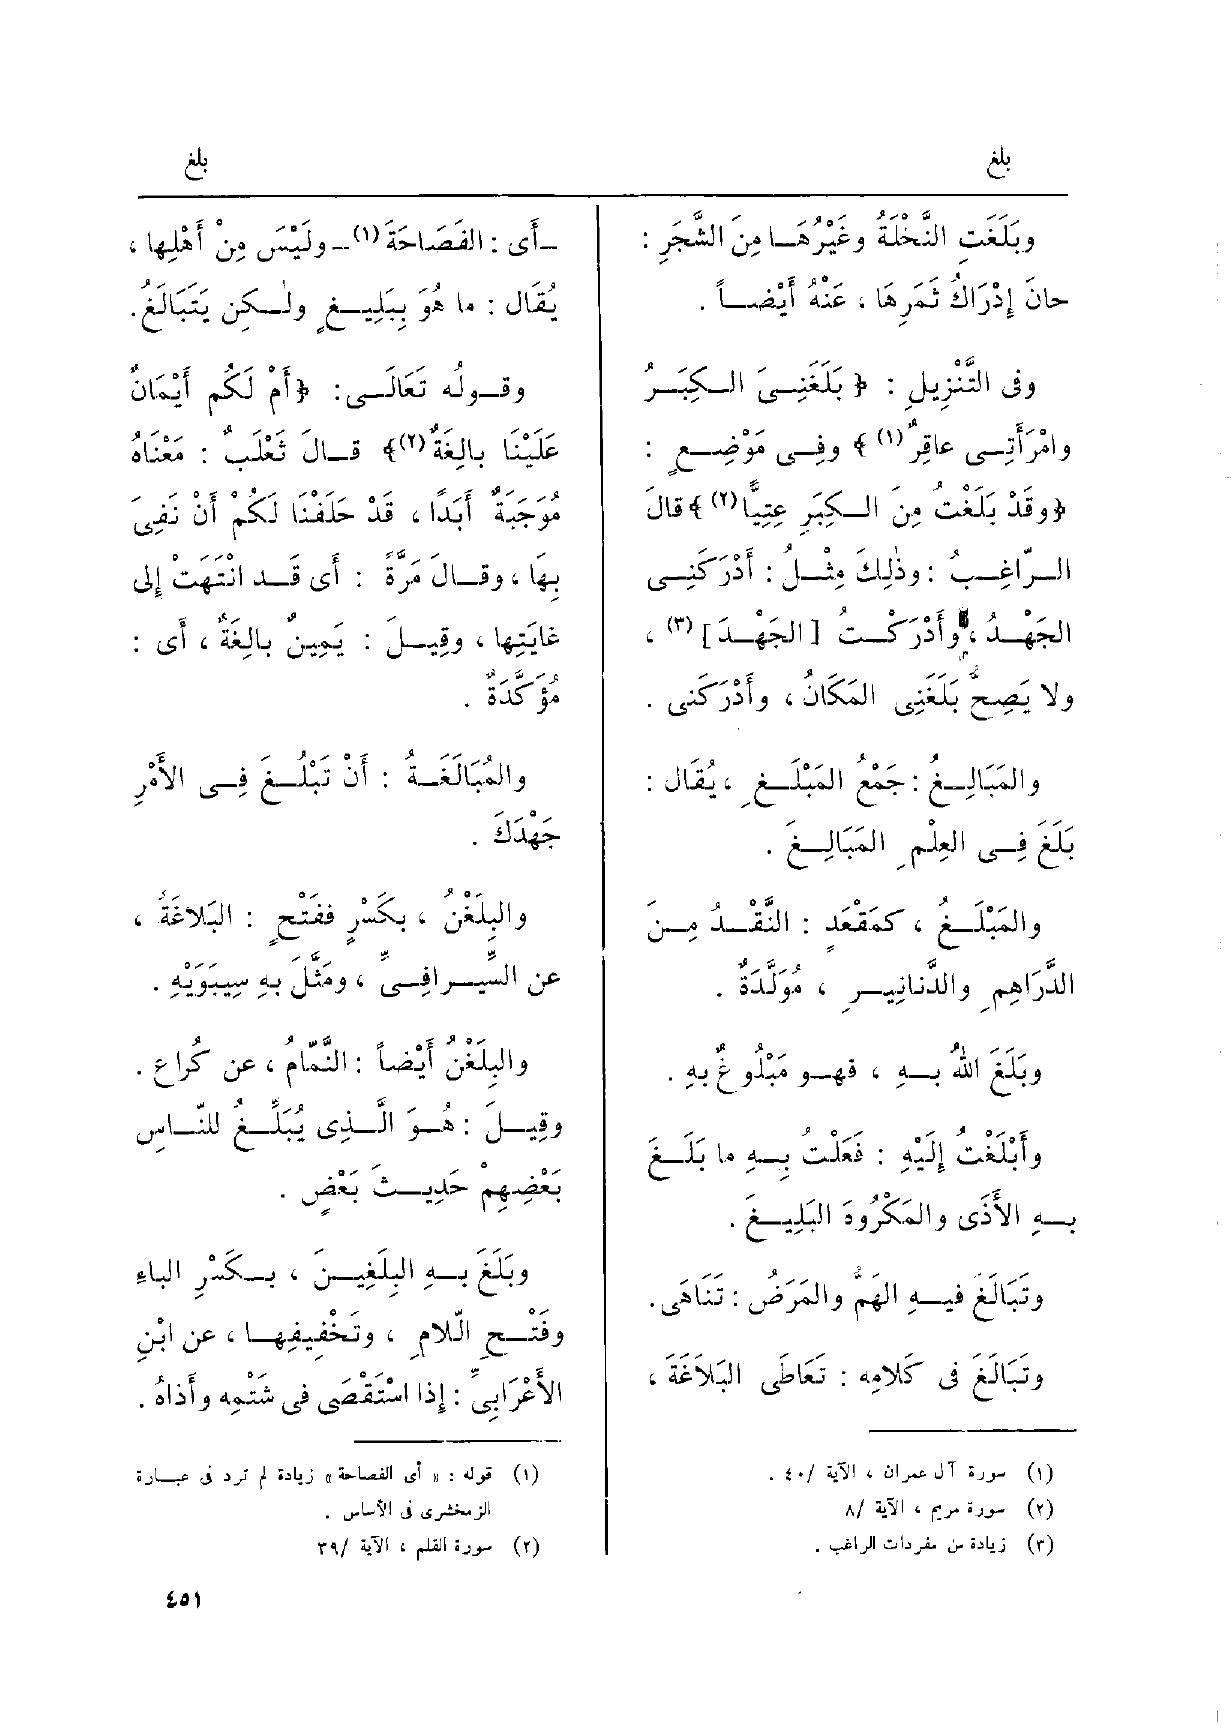 بلغ
بلغ
وبَلَغَتِ النَّخْلَةُ وغَيْرُهَـا مِنَ الشَّجَرِ :
حانَ إِدْرَاكُ ثَمَرِهَا ، عَنْهُ أَيْضـاً .
وفى التَّنْزِيلِ : ﴿ بَلَغَنِـىَ الـكِبَـرُ
وامْرَأَتِـى عاقِرٌ (١) ﴾ وفِـى مَوْضِـعٍ :
﴿وقَدْ بَلَغْتُ مِنَ الـكِبَرِ عِتِيًّا (٢) ﴾ قالَ
الـرّاغِـبُ : وذٰلِكَ مِثْـلُ : أَدْرَكَنِـى
الجَهْـدُ ، وأَدْرَكْـتُ [ الجَهْـدَ ] (٣) ،
ولا يَصِحُّ بَلَغَنِى المَكَانُ ، وأَدْرَكَنى .
والمَبَالِـغُ : جَمْعُ المَبْلَـغِ ، يُقَال :
بَلَغَ فِـى العِلْمِ المَبَالِـغَ .
والمَبْلَـغُ ، كمَقْعَدٍ : النَّقْـدُ مِـنَ
الدَّرَاهِمِ والدَّنانِيـرِ ، مُوَلَّدَةٌ .
وبَلَغَ اللهُ بِـهِ ، فهـو مَبْلُوغٌ بِهِ .
وأَبْلَغْتُ إِلَيْهِ : فَعَلْتُ بِـهِ ما بَلَـغَ
بـهِ الأَذَى والمَكْرُوهَ البَلِيـغَ .
وتَبَالَغَ فيـهِ الهَمُّ والمَرَضُ : تَنَاهَى.
وتَبَالَغَ فى كَلامِهِ : تَعَاطَى البَلاَغَةَ ،
(١) سورة آل عمران ، الآية /٤٠ .
(٢) سورة مريم ، الآية /٨
(٣) زيادة من مفردات الراغب .
ـ أَى : الفَصَاحَةَ (١) ـ ولَيْسَ مِنْ أَهْلِها ،
يُقَال : ما هُوَ بِبَلِيـغٍ ولٰـكِن يَتَبَالَغُ.
وقـولُه تَعَالَـى: ﴿أَمْ لَكُم أَيْمَانٌ
عَلَيْنَا بالِغَةٌ (٢)﴾ قـالَ ثَعْلَبٌ : مَعْنَاهُ
مُوجَبَةٌ أَبَدًا ، قَدْ حَلَفْنَا لَكُمْ أَنْ نَفِىَ
بِهَا ، وقـالَ مَرَّةً : أَى قَـد انْتَهَتْ إِلى
غايَتِها ، وقِيـلَ : يَمِينٌ بالِغَةٌ ، أَى :
مُؤَكَّدَةٌ .
والمُبَالَغَـةُ : أَنْ تَبْلُـغَ فِـى الأَمْرِ
جَهْدَكَ .
والبِلَغْنُ ، بكَسْرٍ ففَتْحٍ : البَلاغَةُ ،
عن السِّيـرافِـىِّ ، ومَثَّلَ بهِ سِيبَوَيْهِ .
والبِلَغْنُ أَيْضاً : النَّمّامُ ، عن كُراع .
وقِيـلَ : هُـوَ الَّـذِى يُبَلِّـغُ للنّـاسِ
بَعْضِهِمْ حَدِيـثَ بَعْضٍ .
وبَلَغَ بـهِ البِلَغِيـنَ ، بـكَسْرِ الباءِ
وفَتْـحِ الّلامِ ، وتَخْفِيفِهـا ، عن ابْنِ
الأَعْرَابِىِّ : إِذا اسْتَقْصَى فى شَتْمِه وأَذاهُ .
(١) قوله : « أى الفصاحة » زيادة لم ترد فى عبـارة
الزمخشرى فى الأساس .
(٢) سورة القلم ، الآية /٣٩
٤٥١